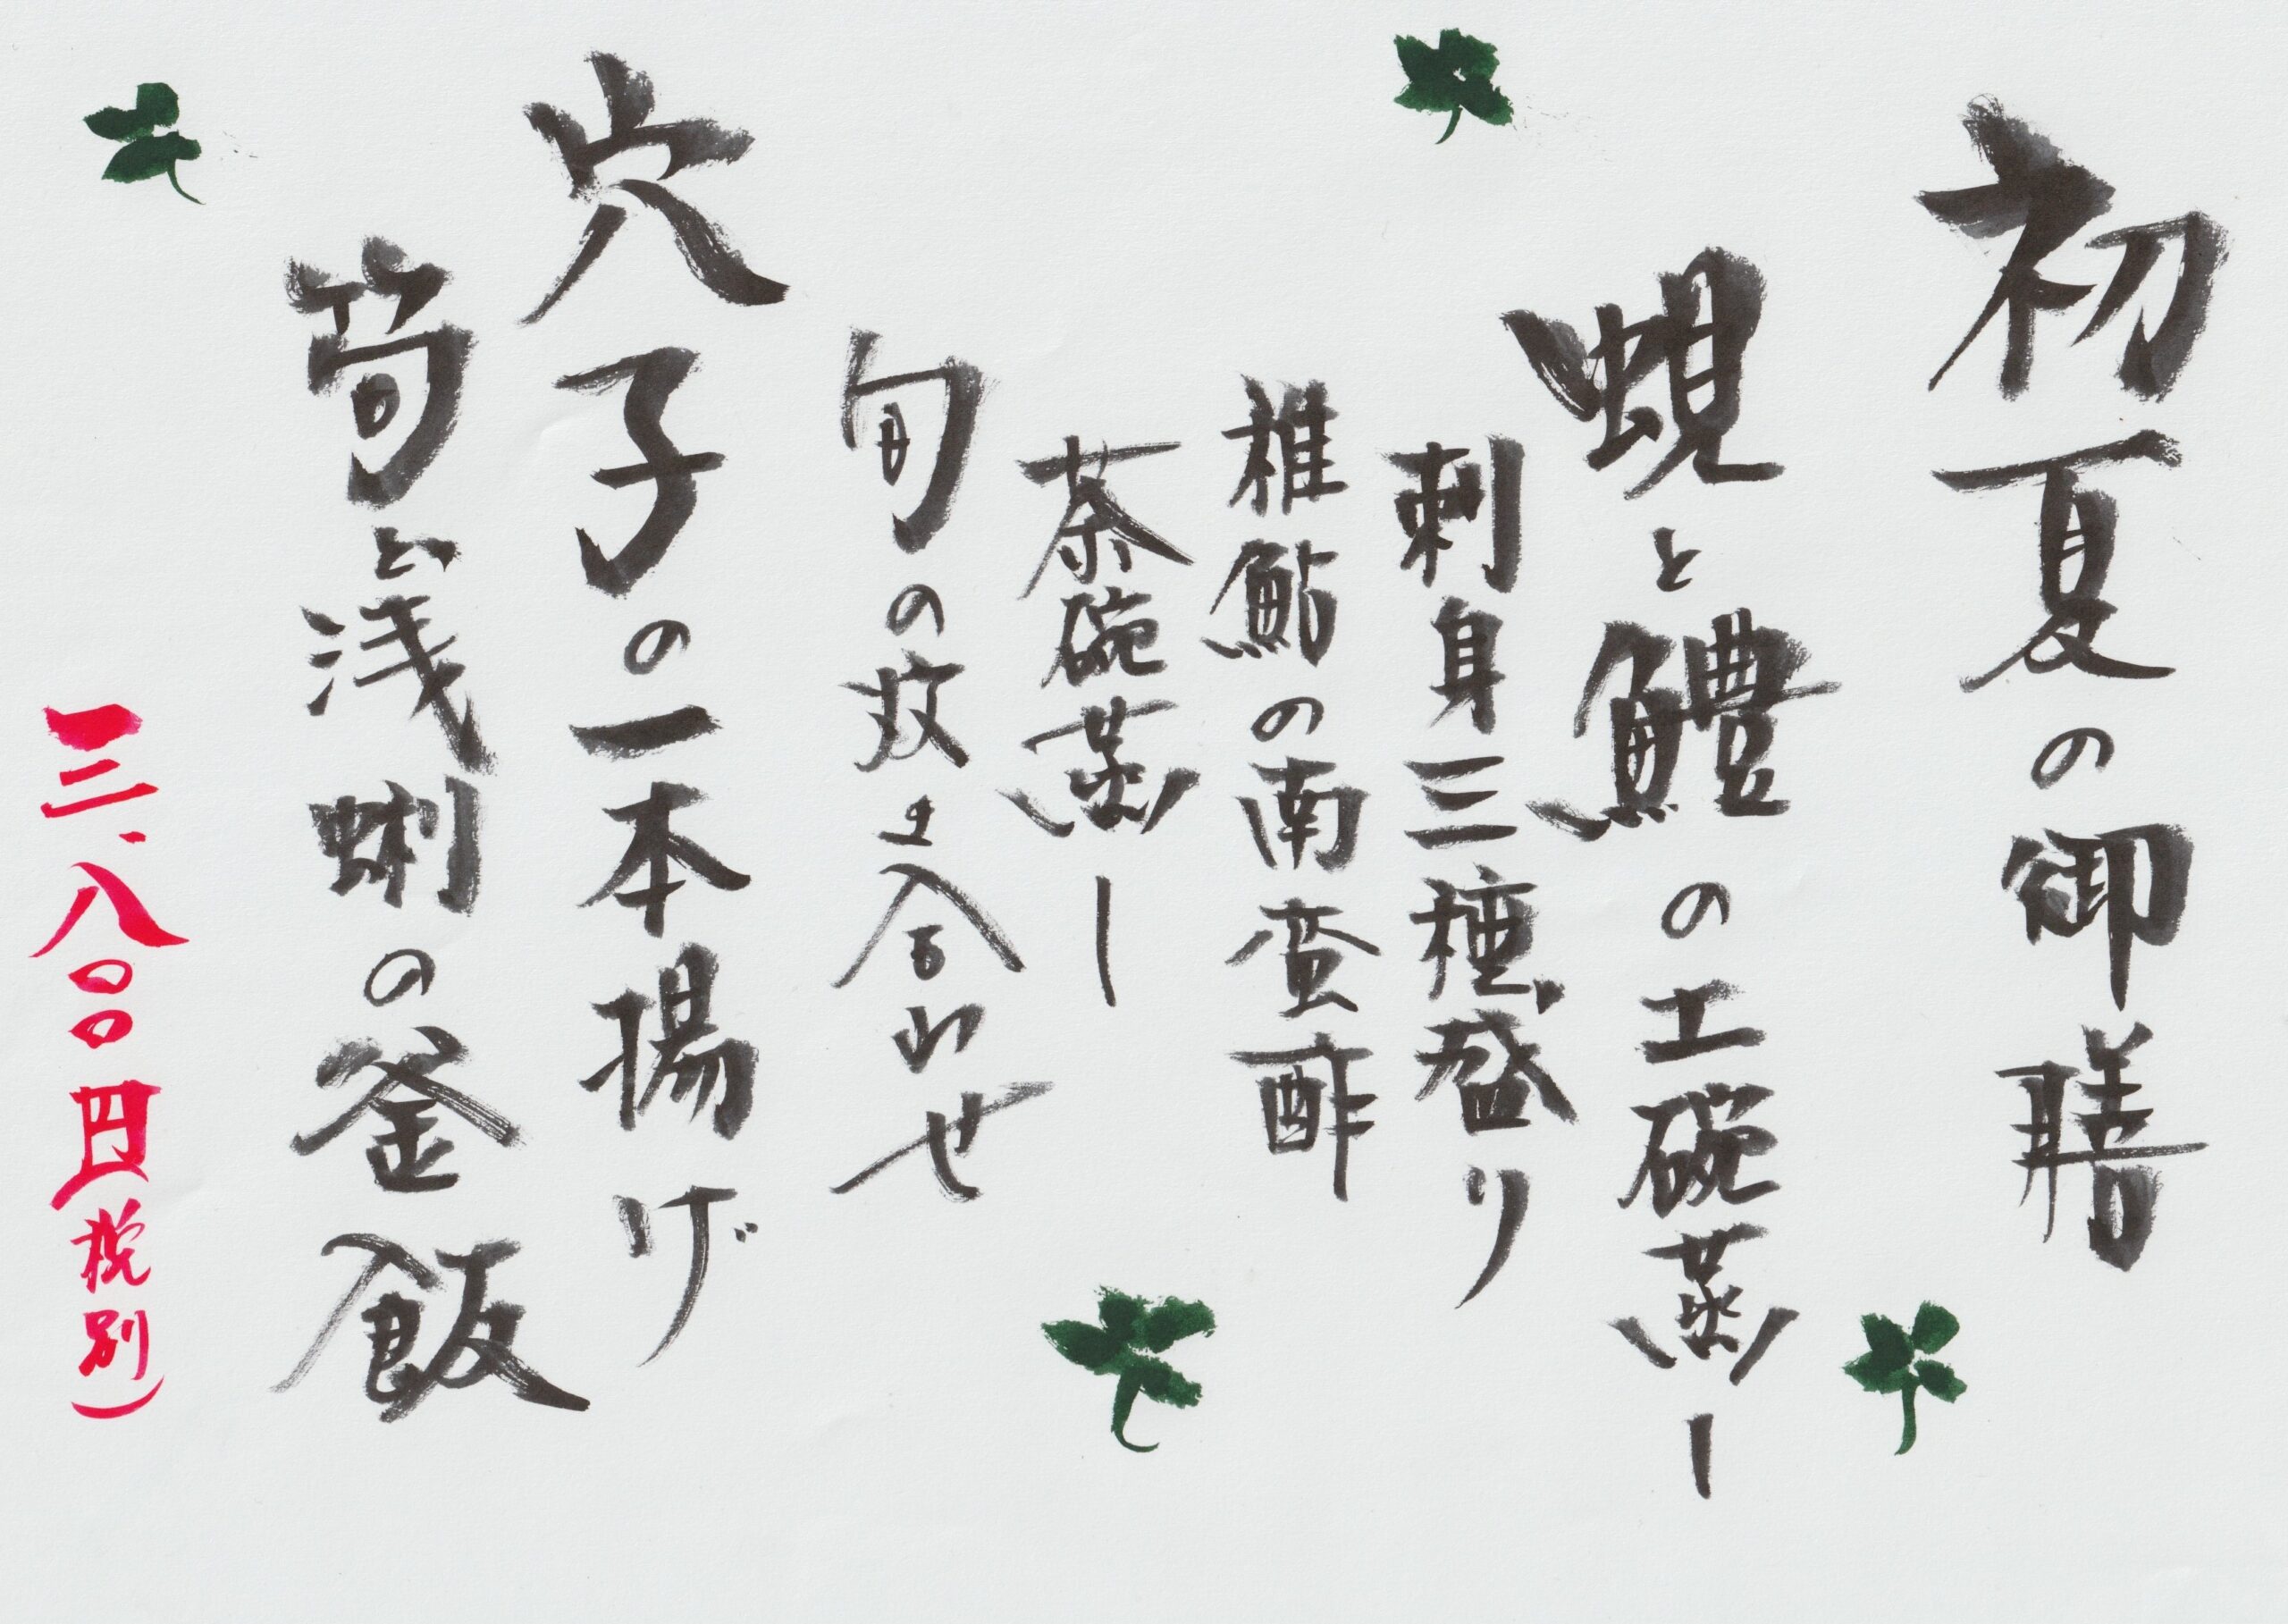 初夏の御膳
蜆と鱧の土碗蒸し
刺身三種盛り
稚鮎の南蛮酢
茶碗蒸し
旬の炊き合わせ
穴子の一本揚げ
筍と浅蜊の釜飯
三、八〇〇円(税別)